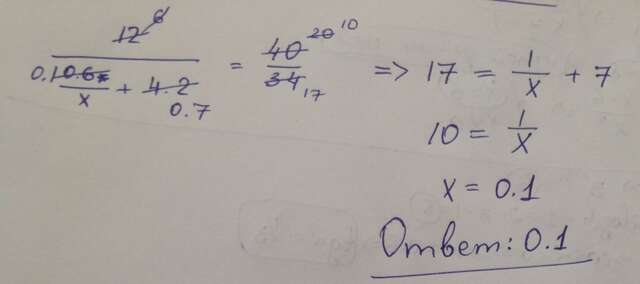 12 6
0.1 0.6x / x + 4.2 0.7 = 40 20 10 / 34 17 => 17 = 1/x + 7
10 = 1/x
x = 0.1
Ответ: 0.1